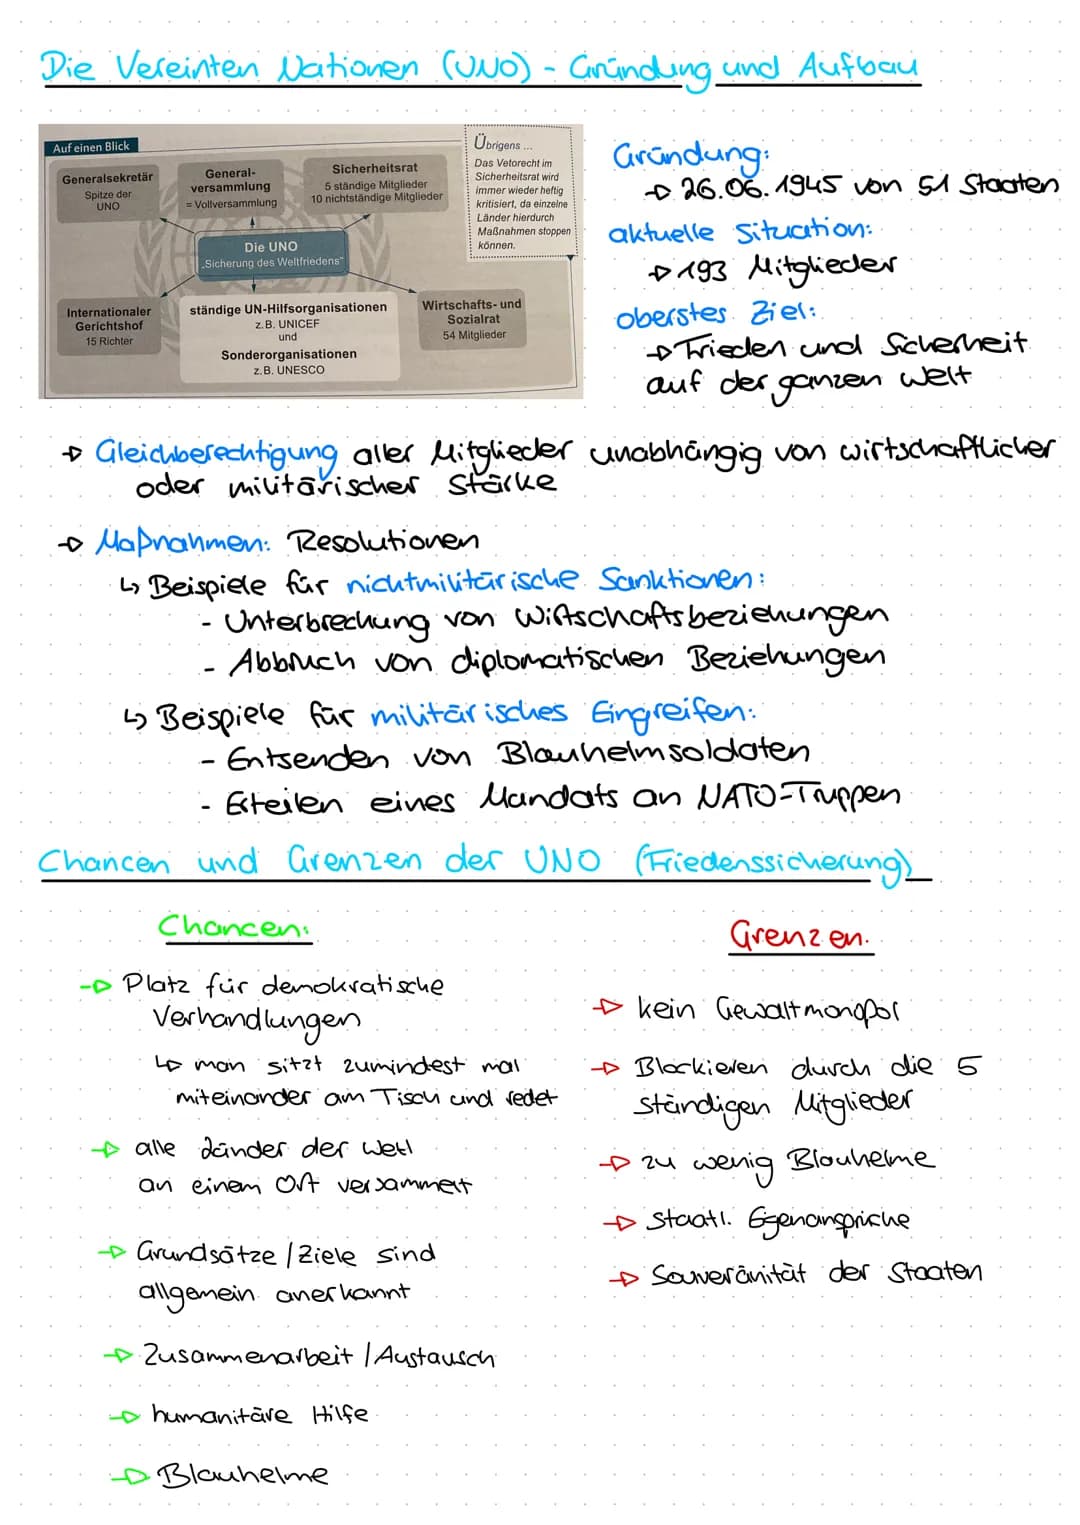 Die Vereinten Nationen (UNO) - Gründung und Aufbau
Auf einen Blick
Generalsekretär
Spitze der
UNO
General-
versammlung
= Vollversammlung
Sicherheitsrat
5 ständige Mitglieder
10 nichtständige Mitglieder
Die UNO
„Sicherung des Weltfriedens“
Internationaler
Gerichtshof
15 Richter
ständige UN-Hilfsorganisationen
z. B. UNICEF
und
Sonderorganisationen
z. B. UNESCO
Wirtschafts- und
Sozialrat
54 Mitglieder
Übrigens ...
Das Vetorecht im
Sicherheitsrat wird
immer wieder heftig
kritisiert, da einzelne
Länder hierdurch
Maßnahmen stoppen
können.
Gründung:
→ 26.06.1945 von 51 Staaten
aktuelle Situation:
→ 193 Mitglieder
oberstes Ziel:
→ Frieden und Sicherheit
auf der ganzen Welt
→ Gleichberechtigung aller Mitglieder unabhängig von wirtschaftlicher
oder militärischer Stärke
→ Maßnahmen: Resolutionen
↳ Beispiele für nichtmilitärische Sanktionen:
- Unterbrechung von Wirtschaftsbeziehungen
- Abbruch von diplomatischen Beziehungen
↳ Beispiele für militärisches Eingreifen:
- Entsenden von Blauhelmsoldaten
- Erteilen eines Mandats an NATO-Truppen
Chancen und Grenzen der UNO (Friedenssicherung)
Chancen:
→ Platz für demokratische
Verhandlungen
↳ man sitzt zumindest mal
miteinander am Tisch und redet
→ alle Länder der Welt
an einem Ort versammelt
→ Grundsätze / Ziele sind
allgemein anerkannt
→ Zusammenarbeit / Austausch
→ humanitäre Hilfe
→ Blauhelme
Grenzen:
→ kein Gewaltmonopol
→ Blockieren durch die 5
ständigen Mitglieder
→ zu wenig Blauhelme
→ Staatl. Egenansprüche
→ Souveränität der Staaten